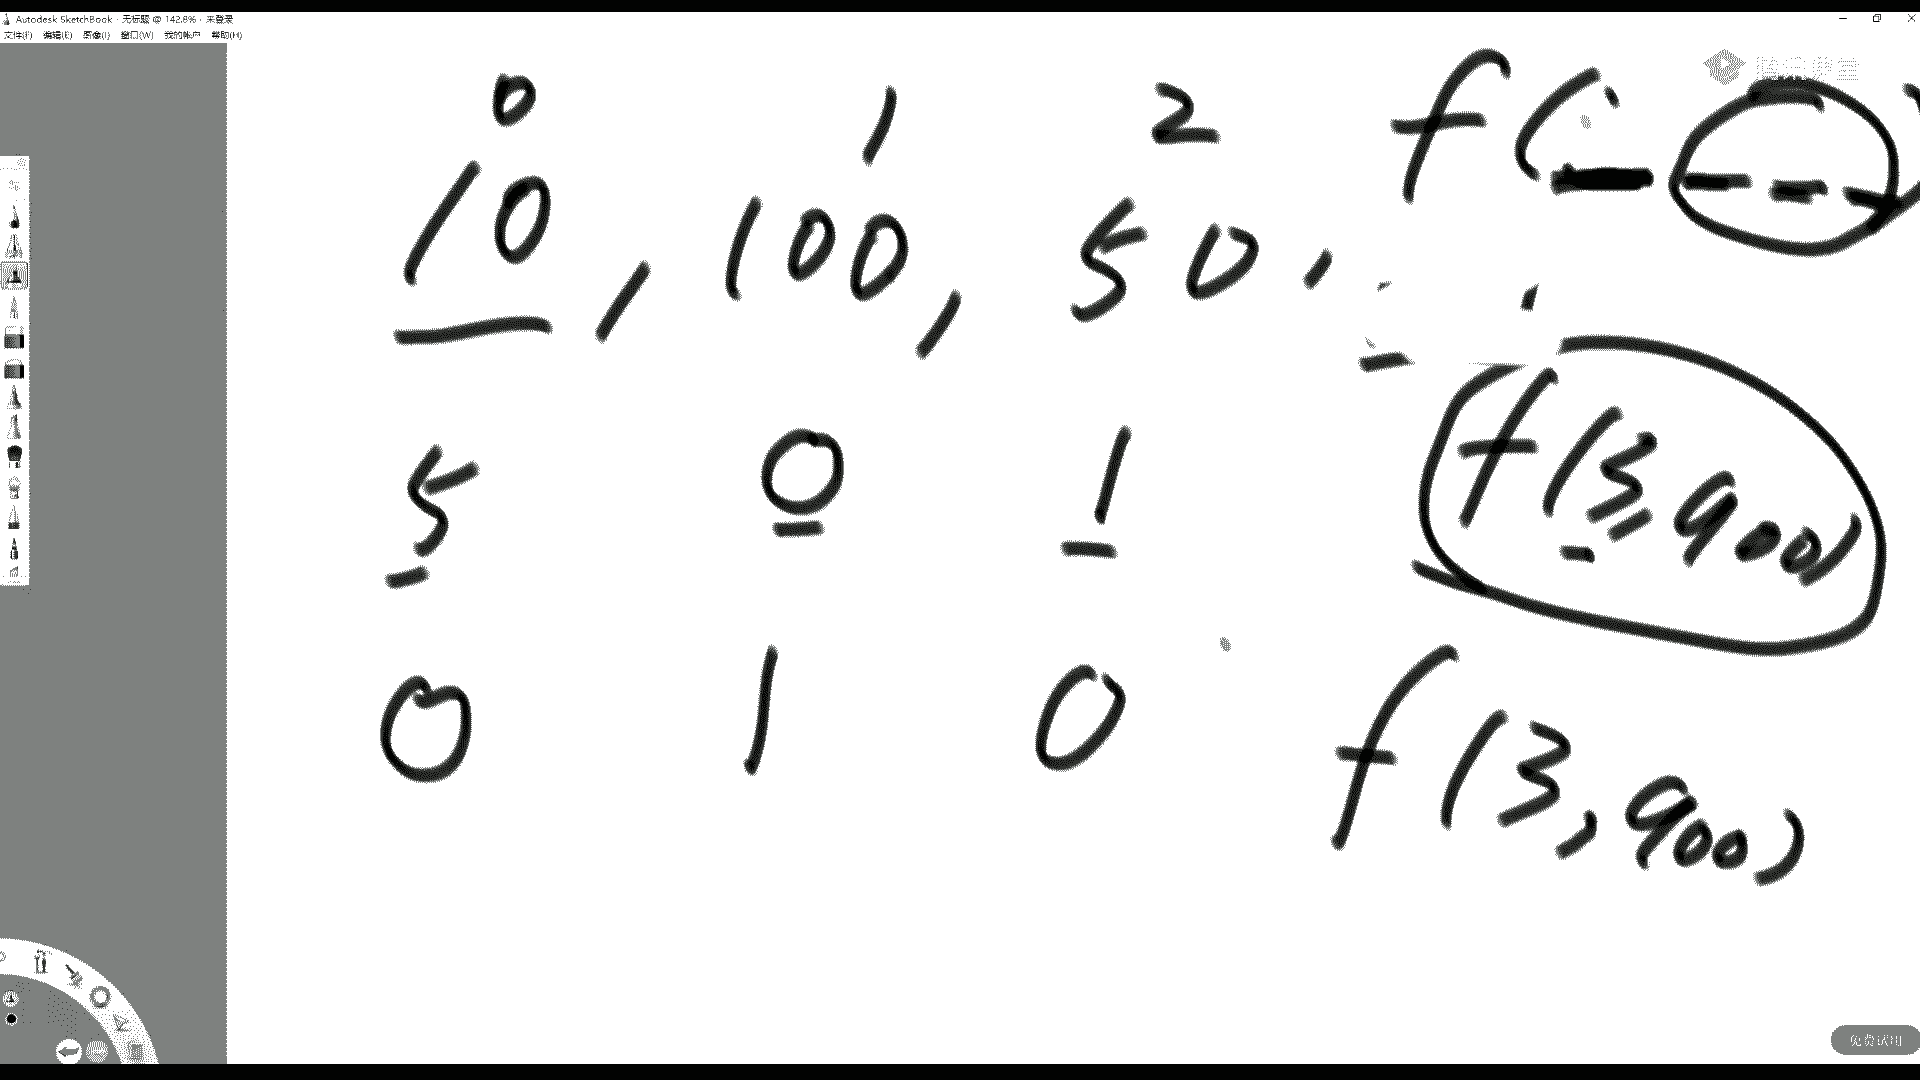 Autodesk SketchBook - 无标题 @ 142.8% - 未登录
文件(F) 编辑(E) 图像(I) 窗口(W) 我的帐户 帮助(H)
0 1 2 f(
10, 100, 50,
5 0 1 f(3,900)
0 1 0 f(3,900)
免费试用